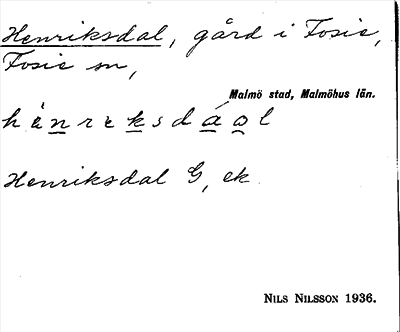 Henriksdal, gård i Fosie,
Fosie sn,
Malmö stad, Malmöhus län.
hènreksdáol
Henriksdal G, ek.
Nils Nilsson 1936.